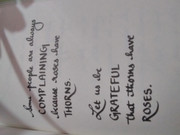 Some people are always
COMPLAINING
because roses have
THORNS.
Let us be
GRATEFUL
that thorns have
ROSES.